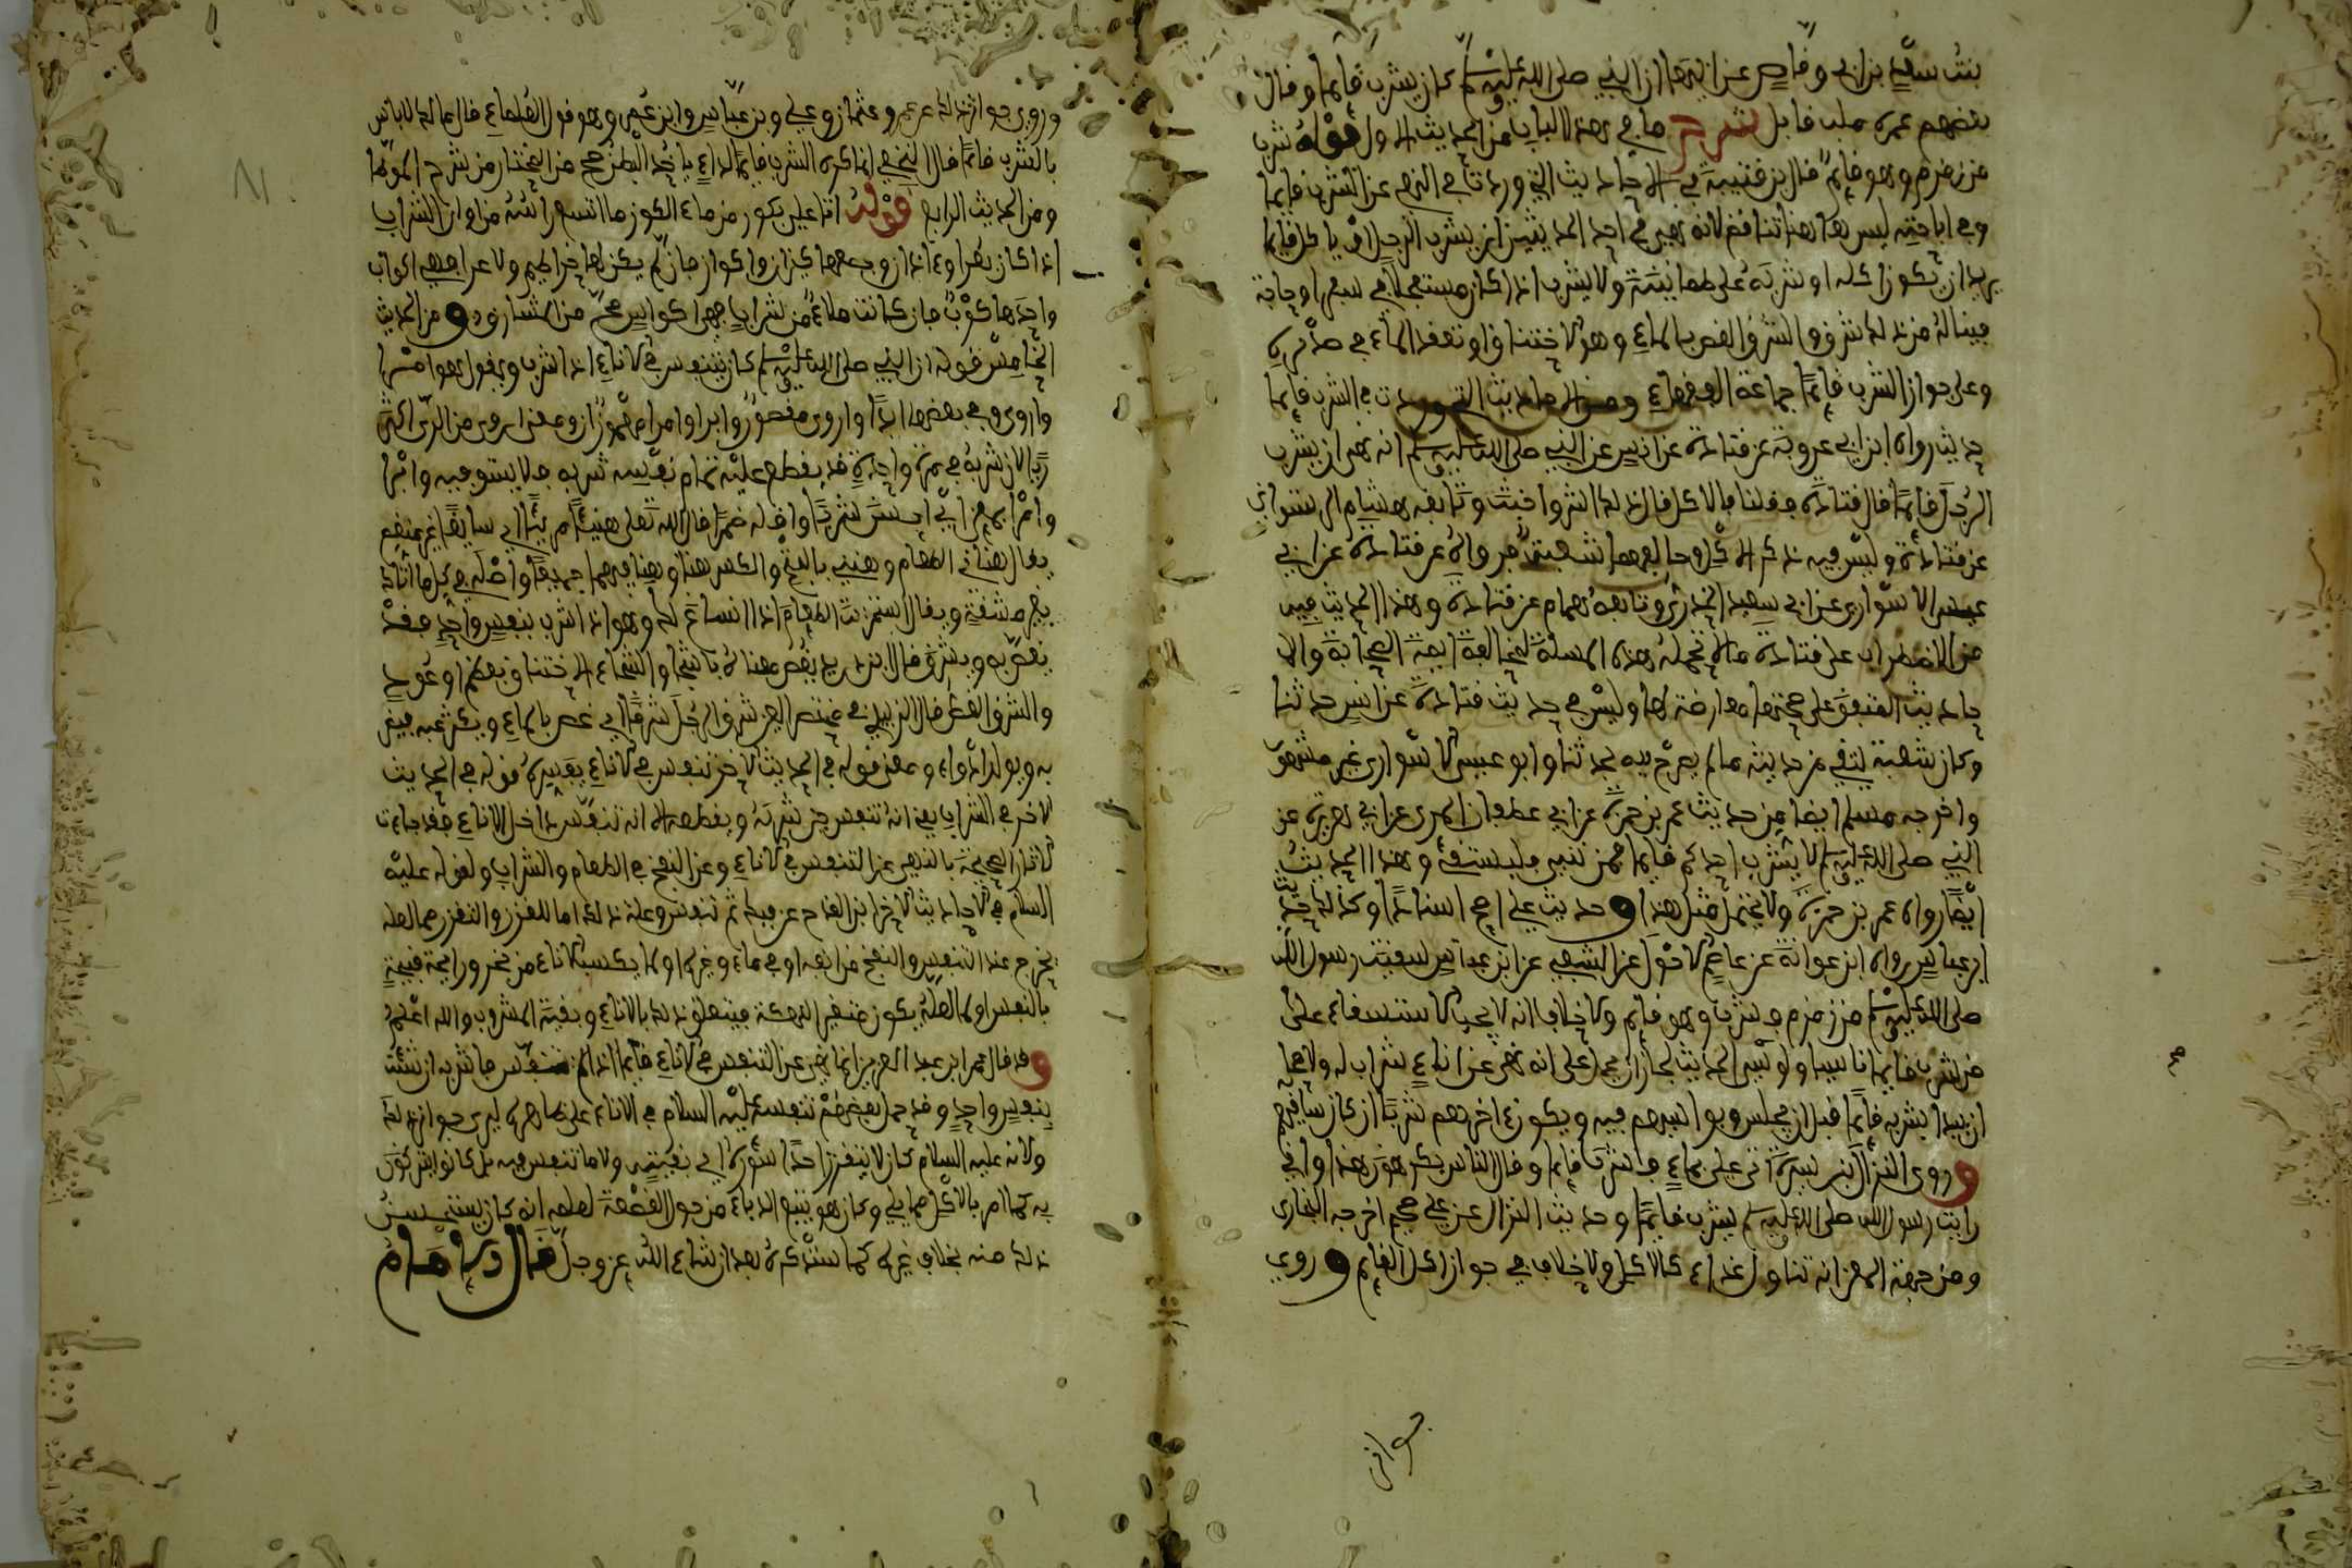 بنت سعد بن ابي وقاص عن ابيها ان النبي صلى الله عليه وسلم كان يشرب قايما وقال
بعضهم عبيدة بنت نابل شرح ما في هذا الباب من الحديث الاول قوله شرب
من زمزم وهو قايم قال بن قتيبة في الاحاديث التي وردت في النهي عن الشرب قايما
وفي اباحته ليس بهذا تناقض لانه نهى في احد الحديثين ان يشرب الرجل او ياكل قايما
يريد ان يكون اكله او شربه على طمانينة ولا يشرب اذا كان مستعجلا في سفر او حاجة
فيناله من ذلك شرق والشرق الغص بالماء وهو الاختناق او تعقد الماء في صدره
وعلى جواز الشرب قايما جماعة الفقهاء ومن الاحاديث التي وردت في الشرب قايما
حديث رواه ابن ابي عروبة عن قتادة عن انس عن النبي صلى الله عليه وسلم انه نهى ان يشرب
الرجل قايما قال قتادة فقلنا فالاكل قال ذلك اشر واخبث وتابعه هشام الدستوائي
عن قتادة وليس فيه ذكر الاكل وخالفهما شعبة فرواه عن قتادة عن ابي
عيسى الاسواري عن ابي سعيد الخدري وتابعه همام عن قتادة وهذا الحديث فيه
من الاضطراب على قتادة مالا تحمله هذه المسلة لمخالفة ايمة الصحابة والا
حاديث المتفق على صحتها معارضة لها وليس في حديث قتادة عن انس حدثنا
وكان شعبة يتقي من حديثه مالم يصرح فيه بحدثنا وابو عيسى الاسواري غير مشهور
واخرجه مسلم ايضا من حديث عمر بن حمزة عن ابي غطفان المري عن ابي هريرة عن
النبي صلى الله عليه وسلم لا يشرب احدكم قايما فمن نسي فليستقئ وهذا الحديث
ايضا رواه عمر بن حمزة ولا يحتمل مثل هذا وحديث علي اصح اسنادا وكذلك حديث
ابن عباس رواه ابن عوانة عن عاصم الاحول عن الشعبي عن ابن عباس سقيت رسول الله
صلى الله عليه وسلم من زمزم فشرب وهو قايم ولا خلاف انه لا يجب الاستسقاء على
من شرب قايما ناسيا ولو ... الحديث لجاز ان يحمل على انه نهى عن اناء شراب له ولاصحابه
ان يبدا بشربه قايما قبل ان يجلس ويواسيهم فيه ويكون اخرهم شربا ان كان ساقيهم
وروى النزال بن سبرة اتى علي بماء فشرب قايما وقال الناس يكرهون هذا واني
رايت رسول الله صلى الله عليه وسلم يشرب قايما وحديث النزال عن علي صحيح اخرجه البخاري
ومن جهة المعنى انه تناول غذاء كالاكل ولا خلاف في جواز اكل القايم وروي
وروي جواز ذلك عن عمر وعثمان وعلي وبن عباس وابن عمر وهو قول العلماء قال مالك لا باس
بالشرب قايما قال النخعي انما كره الشرب قايما لداء ياخذ البطن صح من المختار من شرح الموطا
ومن الحديث الرابع قوله اتا علي بكوز من ماء الكوز ما اتسع راسه من اواني الشراب
اذا كان بعرا وءاذان وجمعها كيزان واكواز فان لم يكن لها خراطيم ولا عرا فهي اكواب
واحدها كوب فان كانت ملاء من شراب فهي اكواس صح من المشارق ومن الحديث
الخامس قوله ان النبي صلى الله عليه وسلم كان يتنفس في الاناء اذا شرب ويقول هو امرا
واروى وفي بعضها ابرا واروى مقصور وابرا وامرا مهموزان ومعنى اروى من الري اكثر
ريا لان شربه في مرة واحدة قد يقطع عليه تمام نفسه شربه فلا يستوفيه وابرا
وامرا بمعنى اي احسن شربا واقله ضررا قال الله تعلى هنيئا مريئا اي سايغا غير منغص
يقال هناني الطعام وهنيني بالفتح والكسر هنا وهنا فيهما جميعا واصله في كل ما اتاك
بغير مشقة ويقال استمرئت الطعام اذا انساغ لك وهو اذا شرب بنفس واحد فقد
يغص به ويشرق قال بن دريد يغص هناك ...
والشرق الغص قال الزبيدي في مختصر العين شرق الرجل شرقا اي غص بالماء ويكثر عبه فيضر
به ويولد ادواء ومعنى قوله في الحديث الاخر تنفس في الاناء يفسره قوله في الحديث
الاخر في الشراب يعني انه تنفس حين شربه وبقطعه لا انه تنفس داخل الاناء فقد جاءت
الاثار الصحيحة بالنهي عن التنفس في الاناء وعن النفخ في الطعام والشراب ولقوله عليه
السلام في الاحاديث الاخر ابن القدح عن فيك ثم تنفس وعلة ذلك اما للتقزز والتقزر مما لعله
يخرج عند التنفس والنفخ من انفه او في ماء وغيره او لما يكسب الاناء من بخر ورايحة قبيحة
بالنفس او لما لعله يكون متغير النهكة فيتعلق ذلك بالاناء وبقية المشروب والله اعلم
وقد قال عمر ابن عبد العزيز انما نهى عن التنفس في الاناء قايما اذا لم تتنفس فاشربه ان شئت
بنفس واحد وقد حمل بعضهم تنفسه عليه السلام في الاناء على ظاهره ليرى جواز ذلك
ولانه عليه السلام كان لا يتقزز احدا سؤره اي بقيته ولا ما تنفس فيه بل كانوا يتبركون
به كما امر بالاكل مما يلي وكان هو يتبع الدباء من حول القصعة لعلمه انه كان يستحسن
ذلك منه بخلاف غيره كما سنذكره بعد ان شاء الله عز وجل قال الامام